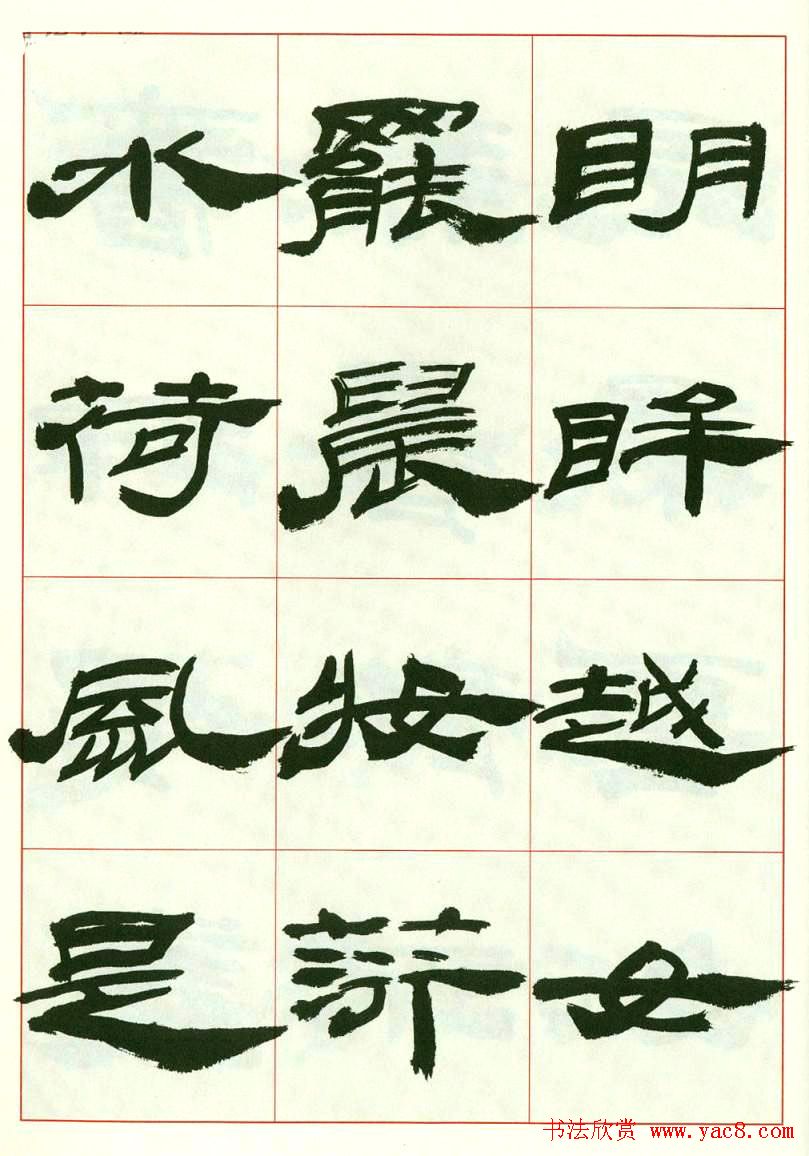 明眸越女
罷晨妝荇
水荷風是
书法欣赏 www.yac8.com